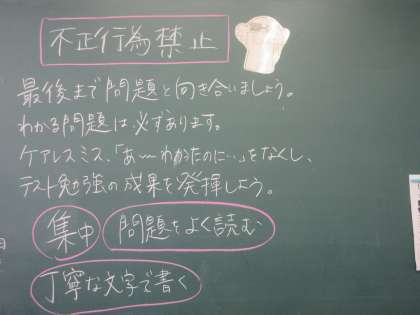 不正行為禁止
最後まで問題と向き合いましょう。
わかる問題は必ずあります。
ケアレスミス、「あ～わかったのに…」をなくし、
テスト勉強の成果を発揮しよう。
集中 問題をよく読む
丁寧な文字で書く